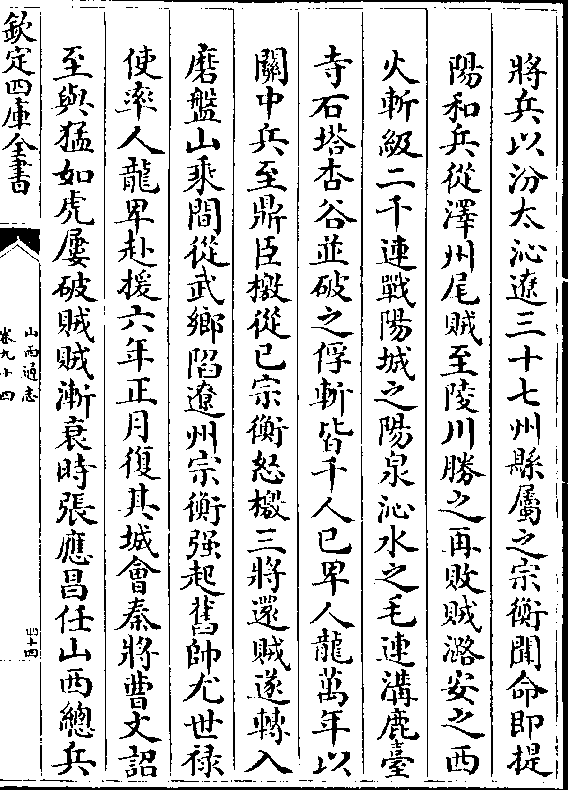 將兵以汾太沁遼三十七州縣屬之宗衡聞命即提
陽和兵從澤州尾賊至陵川勝之再敗賊潞安之西
火斬級二千連戰陽城之陽泉沁水之毛連溝鹿臺
寺石塔杏谷並破之俘斬皆千人已畀人龍萬年以
關中兵至鼎臣檄從已宗衡怒檄三將還賊遂轉入
磨盤山乘間從武鄉陷遼州宗衡强起舊帥尤世禄
使率人龍畀赴援六年正月復其城會秦將曹文詔
至與猛如虎屢破賊賊漸衰時張應昌任山西總兵
欽定四庫全書
山西通志
卷九十四
四十四